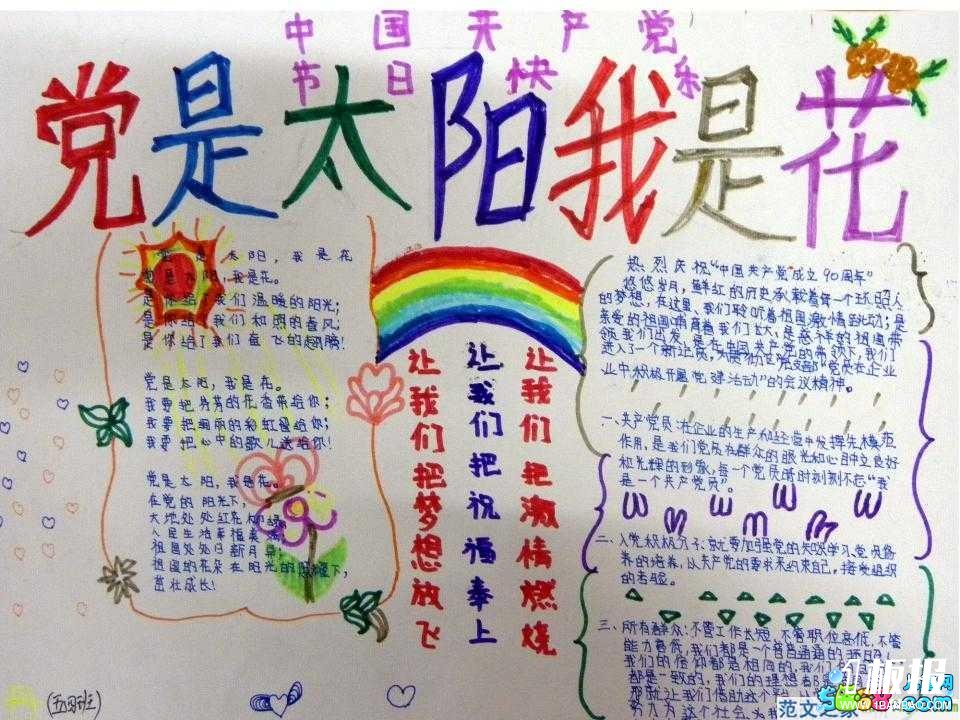 中国共产党
节日快乐
党是太阳我是花
是太阳，我是花
党是太阳，我是花。
是你给了我们温暖的阳光；
是你给了我们和煦的春风；
是你给了我们奋飞的翅膀！
党是太阳，我是花。
我要把芬芳的花香带给你；
我要把绚丽的彩虹留给你；
我要把心中的歌儿送给你！
党是太阳，我是花。
在党的阳光下，
大地处处红花
人民生活幸福美满
祖国处处日新月异
祖国的花朵在阳光的照耀下，
茁壮成长！
让我们把梦想放飞
让我们把祝福奉上
让我们把激情燃烧
热烈庆祝“中国共产党成立90周年”
悠悠岁月，鲜红的历史承载着每一个
的梦想，在这里，我们聆听着祖国激情的
亲爱的祖国哺育着我们长大，是慈祥的祖国带
领我们出发，是在中国共产党的带领下，我们
进入了一个新 党支部“党员在企业
业中积极开展党建活动”的会议精神。
一、共产党员：在企业的生产和经营中发挥先模范
作用，是我们党员在群众的眼光和心目中立良好
和光辉的形象，每一个党员时时刻刻不忘“我
是一个共产党员”。
二、入党积极分子：就要加强党的知识学习，党员培
养的培养，从共产党的要求来约束自己，接受组织
的考验。
三、所有群众：不管工作长短，不管职位高低，不管
能力高低，我们都是一个普普通通的
我们的信仰都是相同的，我们
都是一致的，我们的理想都
那就让我们借助这个
努力为这个社会
(五四班)
板报
WWW.1BANBAO.COM
范文之家